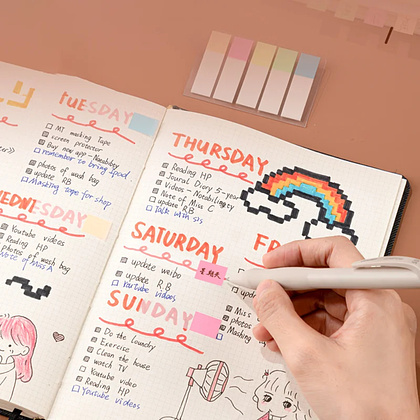 TUESDAY
MT masking Tape
screen protector
Buy new app - Notability
remember to bring ipod
photos of wash bag
update
Masking tape for shop
WEDNESDAY
Youtube videos
Reading HP
photos of wash bag
THURSDAY
Reading HP
Journal Diary 5-year
Videos - Notability
Note of Miss C
update RB
Talk with sis
SATURDAY
update weibo
update R.B
Youtube videos
星期天
SUNDAY
Do the laundry
Exercise
Clean the house
watch TV
Youtube video
Reading HP
Youtube videos
FR
upd
Miss
photos
Masking